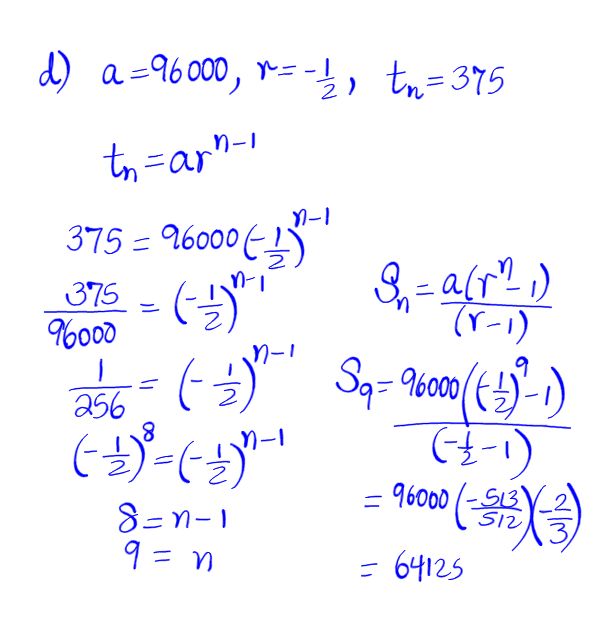 d) a=96000, r=-1/2, tₙ=375
tₙ=arⁿ⁻¹
375 = 96000(-1/2)ⁿ⁻¹
375/96000 = (-1/2)ⁿ⁻¹
1/256 = (-1/2)ⁿ⁻¹
(-1/2)⁸=(-1/2)ⁿ⁻¹
8=n-1
9 = n
Sₙ = a(rⁿ-1)/(r-1)
S₉= 96000((-1/2)⁹-1)/(-1/2-1)
= 96000(-513/512)(-2/3)
= 64125